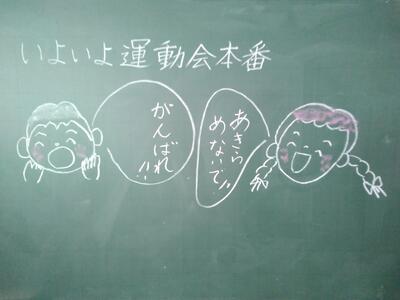 いよいよ運動会本番
がんばれ!!
あきら
めないで!!